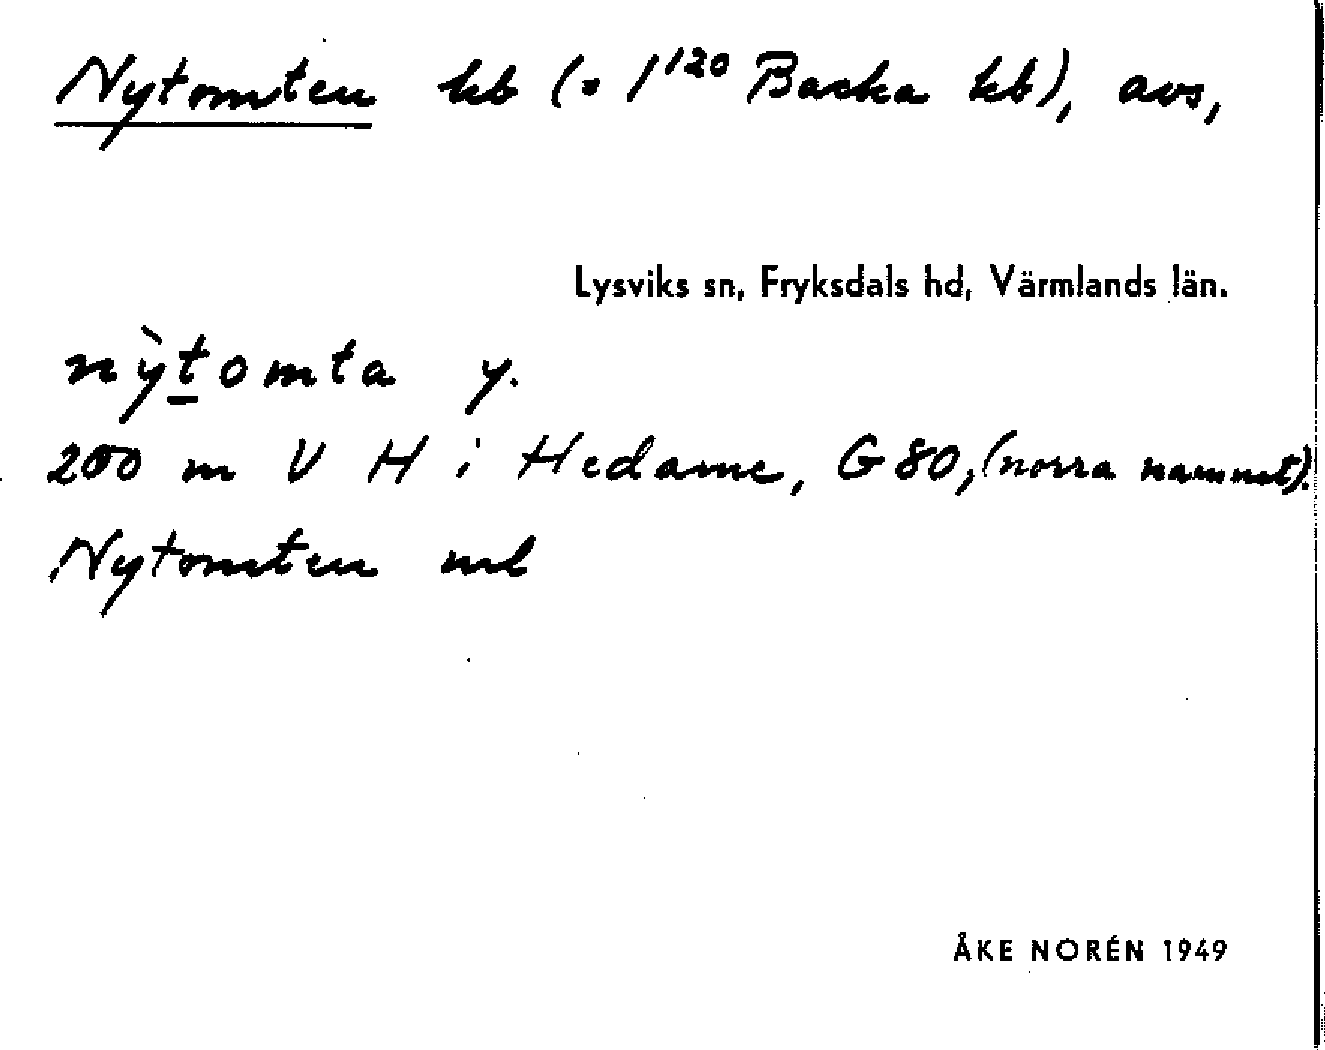 Nytomten hb (= 1¹²⁰ Backa hb), avs,
Lysviks sn, Fryksdals hd, Värmlands län.
nỳt̲omta y.
200 m V H i Hedarne, G 80, (norra namnet).
Nytomten ml
ÅKE NORÉN 1949